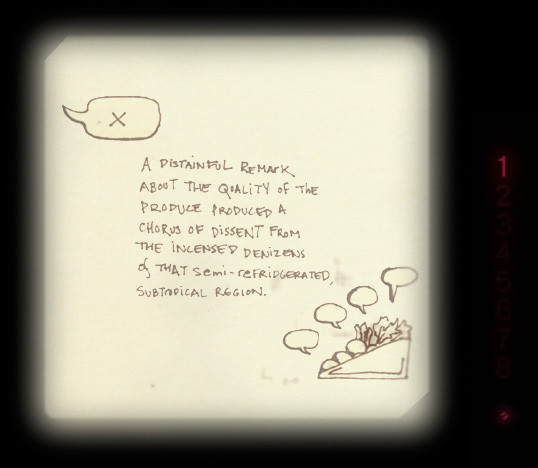 X
A DISTAINFUL REMARK
ABOUT THE QUALITY OF THE
PRODUCE PRODUCED A
CHORUS OF DISSENT FROM
THE INCENSED DENIZENS
of THAT semi-reFRIDGERATED,
SUBTROPICAL REGION.
1
2
3
4
5
6
7
8